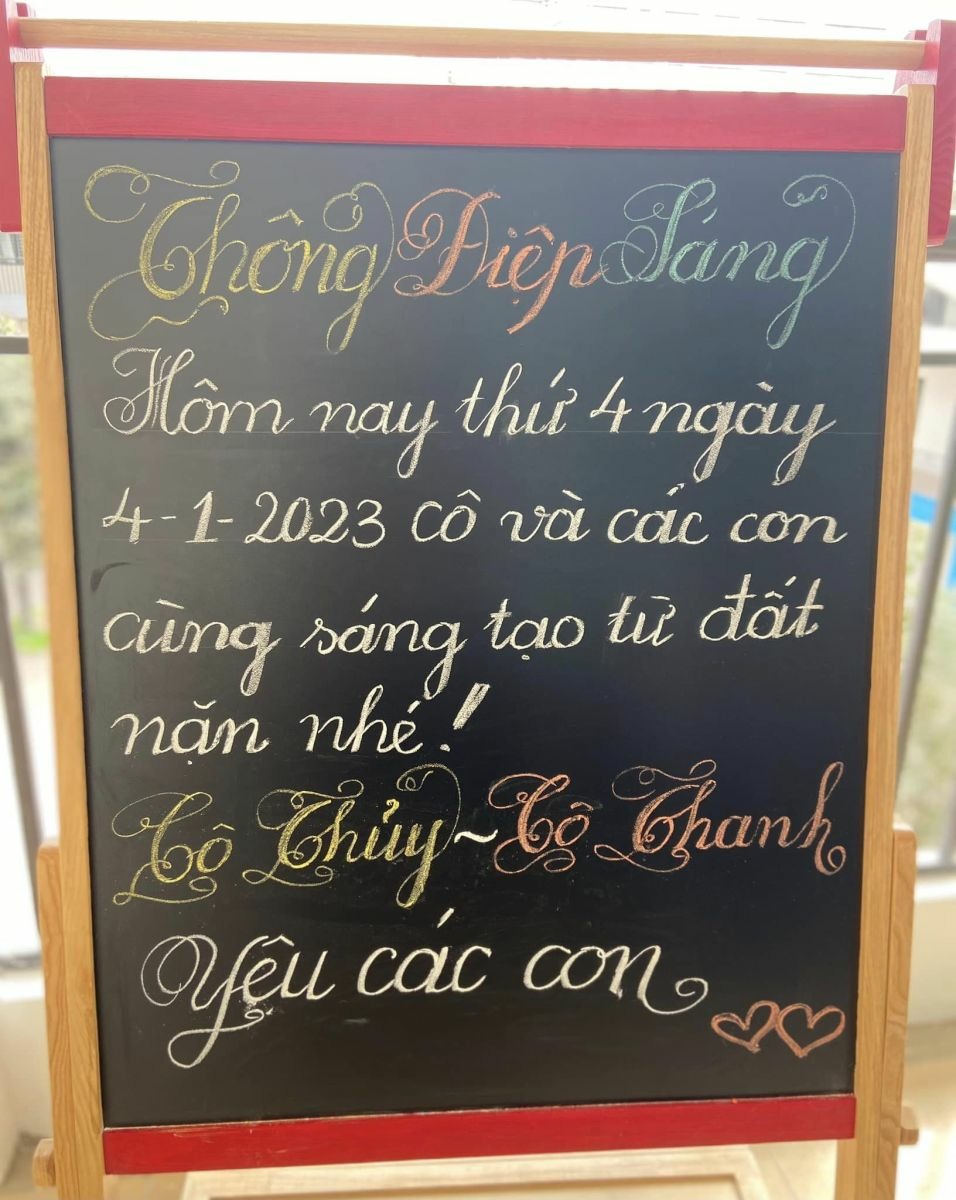 Thông Điệp Sáng
Hôm nay thứ 4 ngày
4-1-2023 cô và các con
cùng sáng tạo từ đất
nặn nhé!
Cô Thủy ~ Cô Thanh
Yêu các con